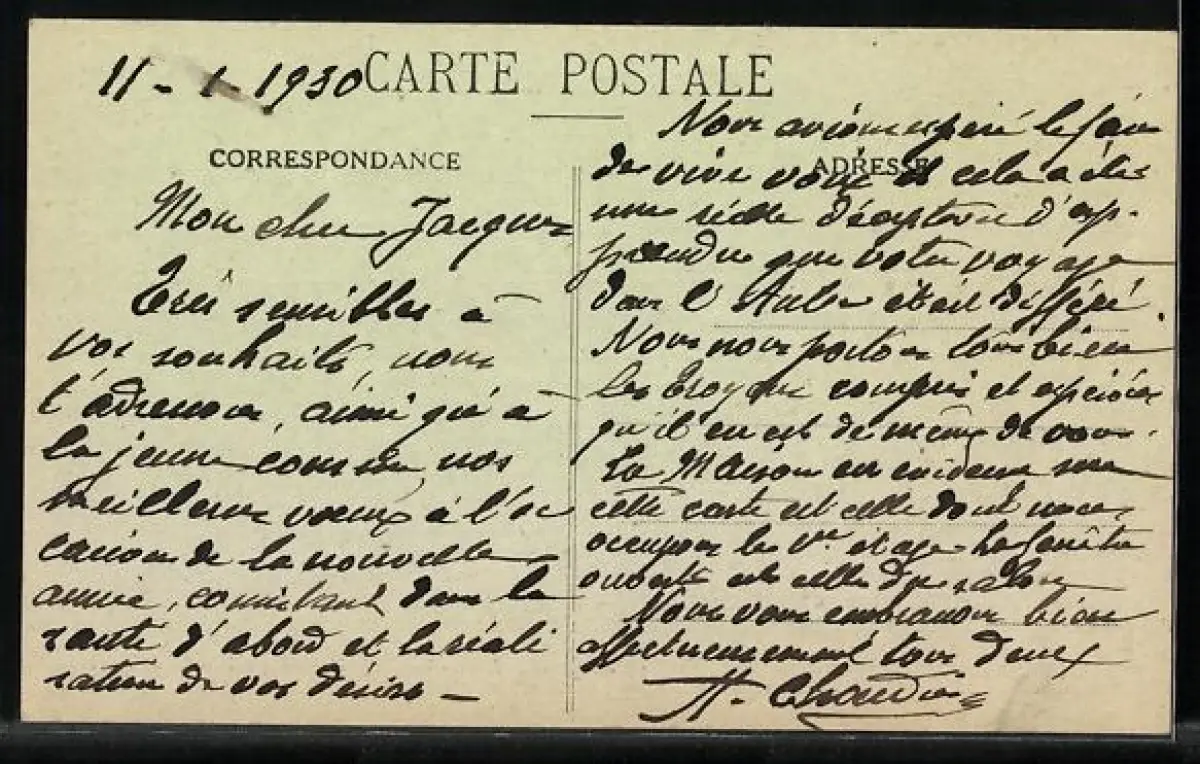 11 - 1 - 1930
CARTE POSTALE
CORRESPONDANCE
ADRESSE
Mon cher Jacques
Très sensibles à
vos souhaits, nous
t'adressons, ainsi qu'à
la jeune cousine nos
meilleurs voeux à l'oc
casion de la nouvelle
année, consistant dans la
santé d'abord et la réali
sation de vos désirs -
Nous avions espéré
de vive voix et cela a été
une réelle déception d'ap-
prendre que votre voyage
dans l'Aube était différé.
Nous nous portons tous bien
les Troyens compris et espérons
qu'il en est de même de vous.
La Maison en évidence sur
cette carte est celle dont nous
occupons le 1er étage - La fenêtre
ouverte est celle du salon
Nous vous embrassons bien
affectueusement tous deux